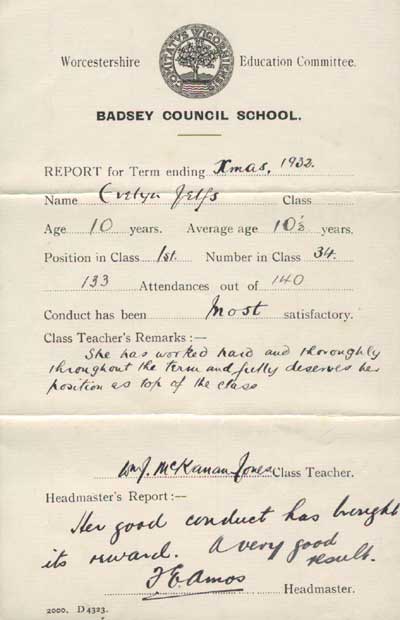 COMITATVS WIGORNIENSIS
Worcestershire Education Committee.
BADSEY COUNCIL SCHOOL.
REPORT for Term ending Xmas, 1932.
Name Evelyn Jelfs Class
Age 10 years. Average age 10½ years.
Position in Class 1st. Number in Class 34.
133 Attendances out of 140
Conduct has been Most satisfactory.
Class Teacher's Remarks :—
She has worked hard and thoroughly
throughout the term and fully deserves her
position as top of the class
McKanan Jones Class Teacher.
Headmaster's Report :—
Her good conduct has brought
its reward. A very good
result.
Amos Headmaster.
2000. D4323.